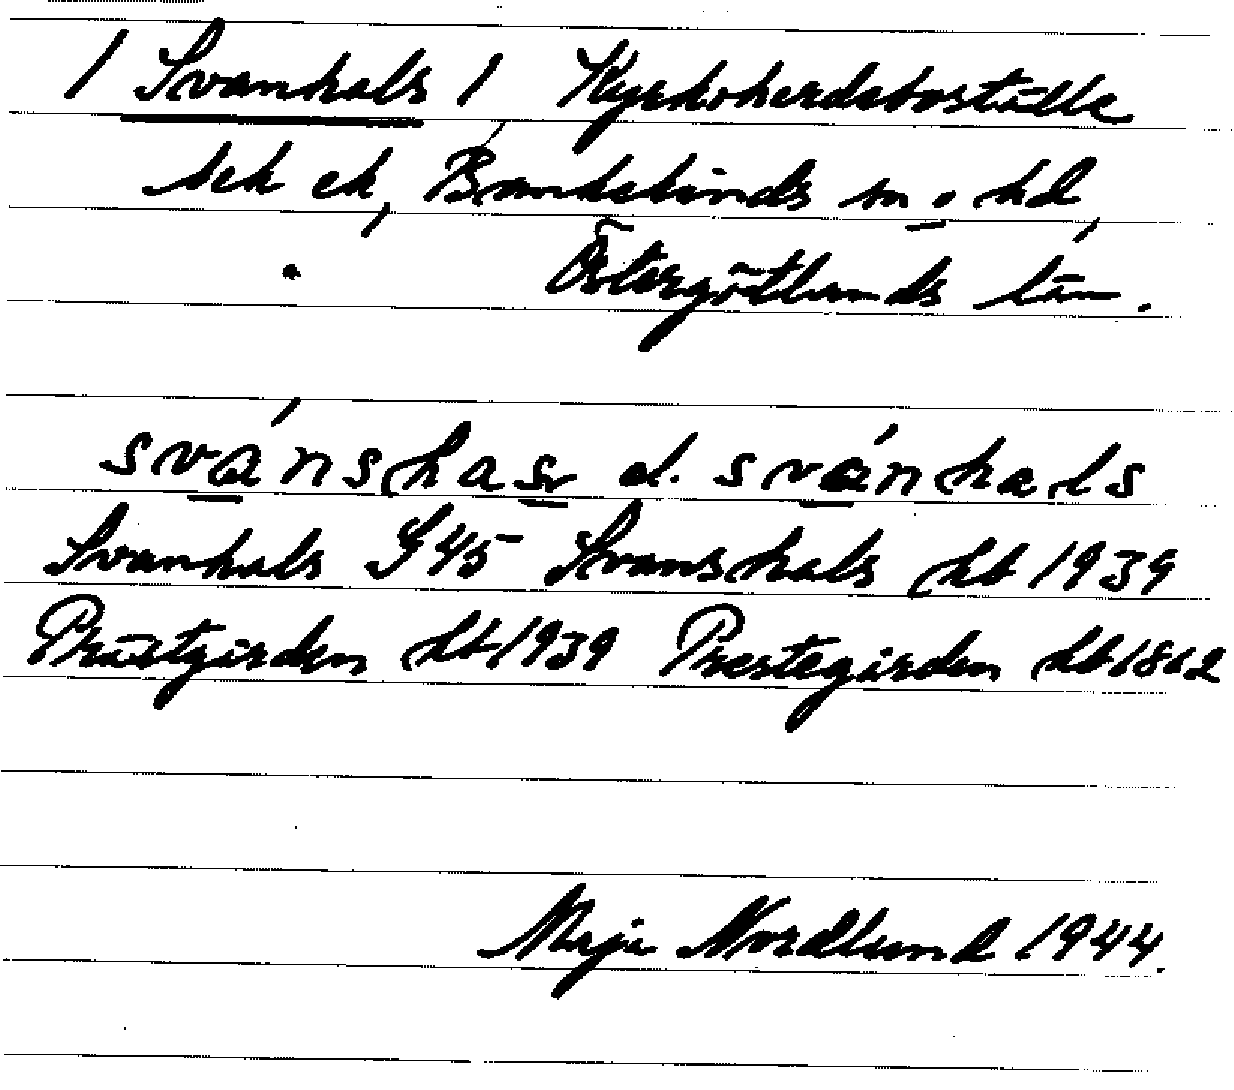 / Svanhals / Kyrkoherdeboställe
ek, Bankekinds sn o hd,
Östergötlands län.
svánshas el. svánhals
Svanhals G 45 Svanshals Jb 1939
Prästgården Jb 1939 Prestegården Jb 1862
Maja Nordlund 1944.